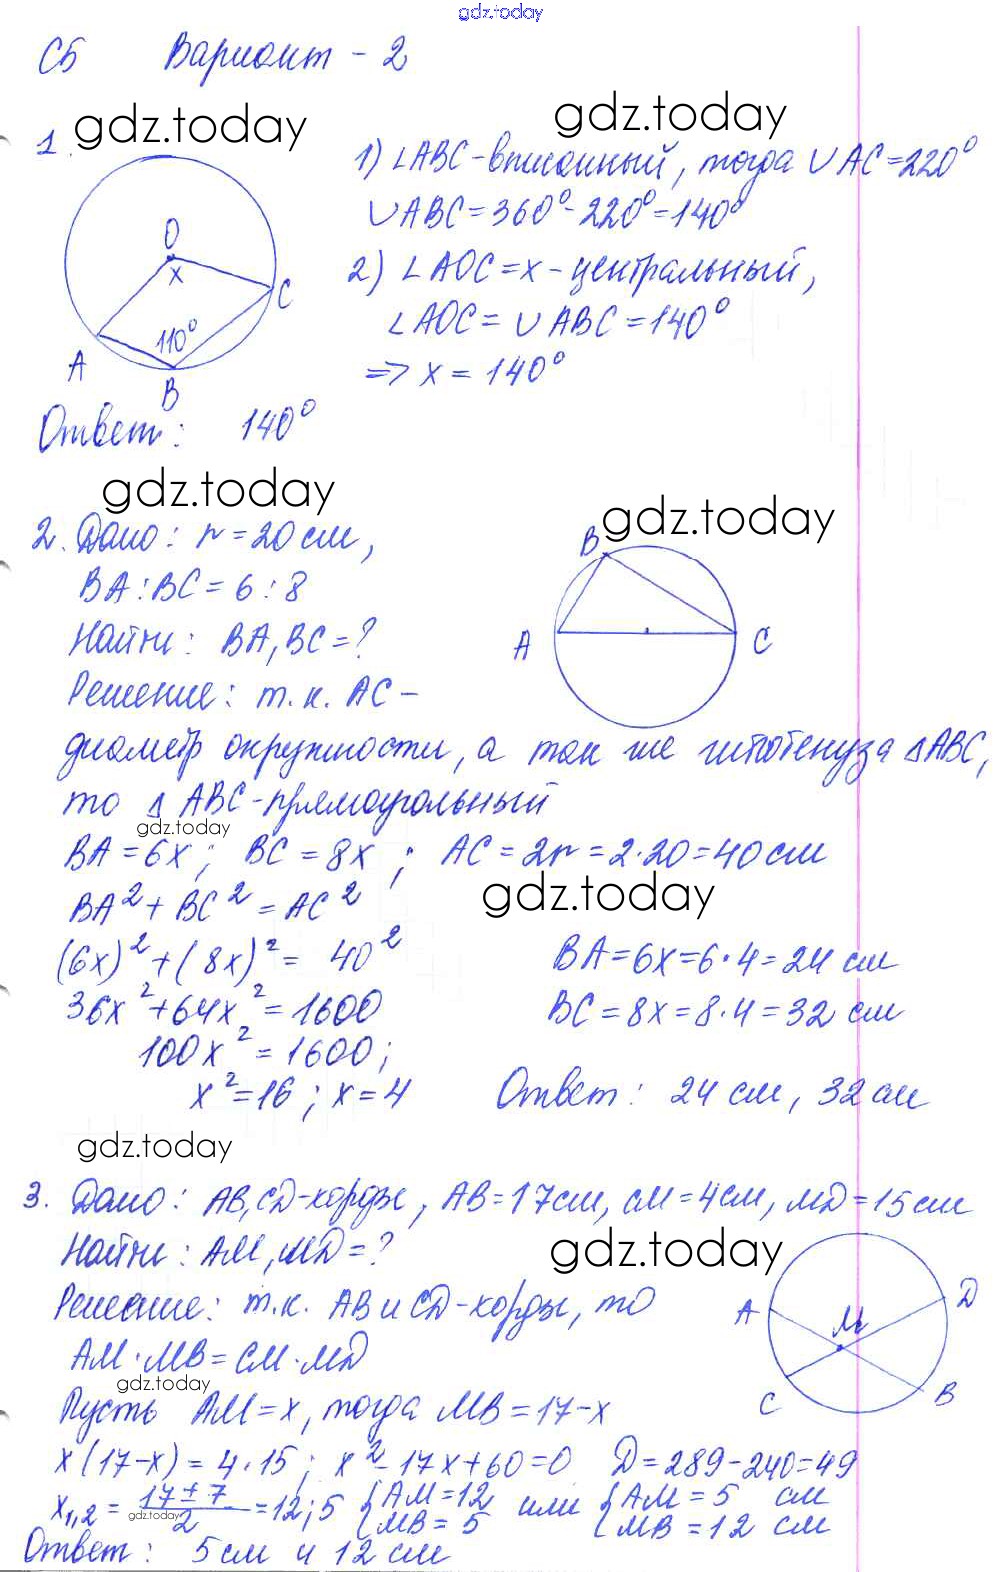 gdz.today
С5 Вариант - 2
gdz.today
gdz.today
1.
O
x
110°
A
B
C
1) ∠ABC-вписанный, тогда ∪AC=220°
∪ABC=360°-220°=140°
2) ∠AOC=x-центральный,
∠AOC=∪ABC=140°
=> x=140°
Ответ: 140°
gdz.today
gdz.today
2. Дано: r=20см,
BA:BC=6:8
Найти: BA,BC=?
Решение: т.к. AC-
B
A
C
диаметр окружности, а так же гипотенуза ΔABC,
то Δ ABC-прямоугольный
gdz.today
BA=6x; BC=8x; AC=2r=2·20=40см
gdz.today
BA²+BC²=AC²
(6x)²+(8x)²= 40²
36x²+64x²=1600
100x²=1600;
x²=16; x=4
BA=6x=6·4=24 см
BC=8x=8·4=32 см
Ответ: 24 см, 32 см
gdz.today
3. Дано: AB,CD-хорды, AB=17см, CM=4см, MD=15см
Найти: AM,MD=?
gdz.today
Решение: т.к. AB и CD-хорды, то
AM·MB=CM·MD
gdz.today
A
M
D
C
B
Пусть AM=x, тогда MB=17-x
x(17-x)=4·15; x²-17x+60=0 D=289-240=49
x1,2=17±7/2=12;5 {AM=12 MB=5 или {AM=5 см MB=12 см
gdz.today
Ответ: 5см и 12см